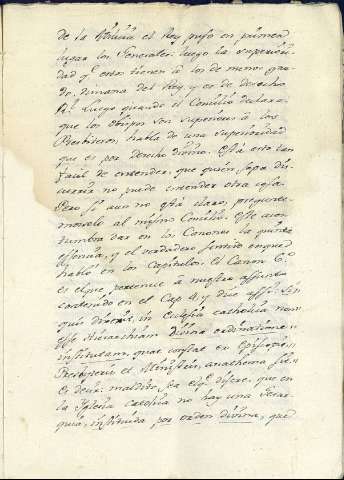 de la Milicia el Rey puso en primer
lugar los Generales, luego la superiori-
dad qe estos tienen à los de menos gra-
do, dimana del Rey, y es de derecho
Rl. Luego quando el Concilio declara
que los obispos son superiores à los
Presbiteros, habla de una superioridad
que es por derecho divino. Està esto tan
facil de entender, que quien sepa dis-
currir no puede entender otra cosa.
Pero si aun no està claro, pregunte-
moselo al mismo Concilio. Este acos-
tumbra dar en los Canones la pura
essencia, y el verdadero sentido en que
habló en los Capitulos. El Canon 6.º
es el que pertenece à nuestro assunto
contenido en el Cap 4, y dice assi: Si
quis dixerit, in Ecclesia catholica non
esse Hierarchiam divina ordinatione
institutam, quae constat ex Episcopis,
Presbyteris et Ministris, anathema sit.
Es decir: maldito sea el qe dixere, que en
la Iglesia catolica no hay una Gerar-
quia, instituida por orden divina, que